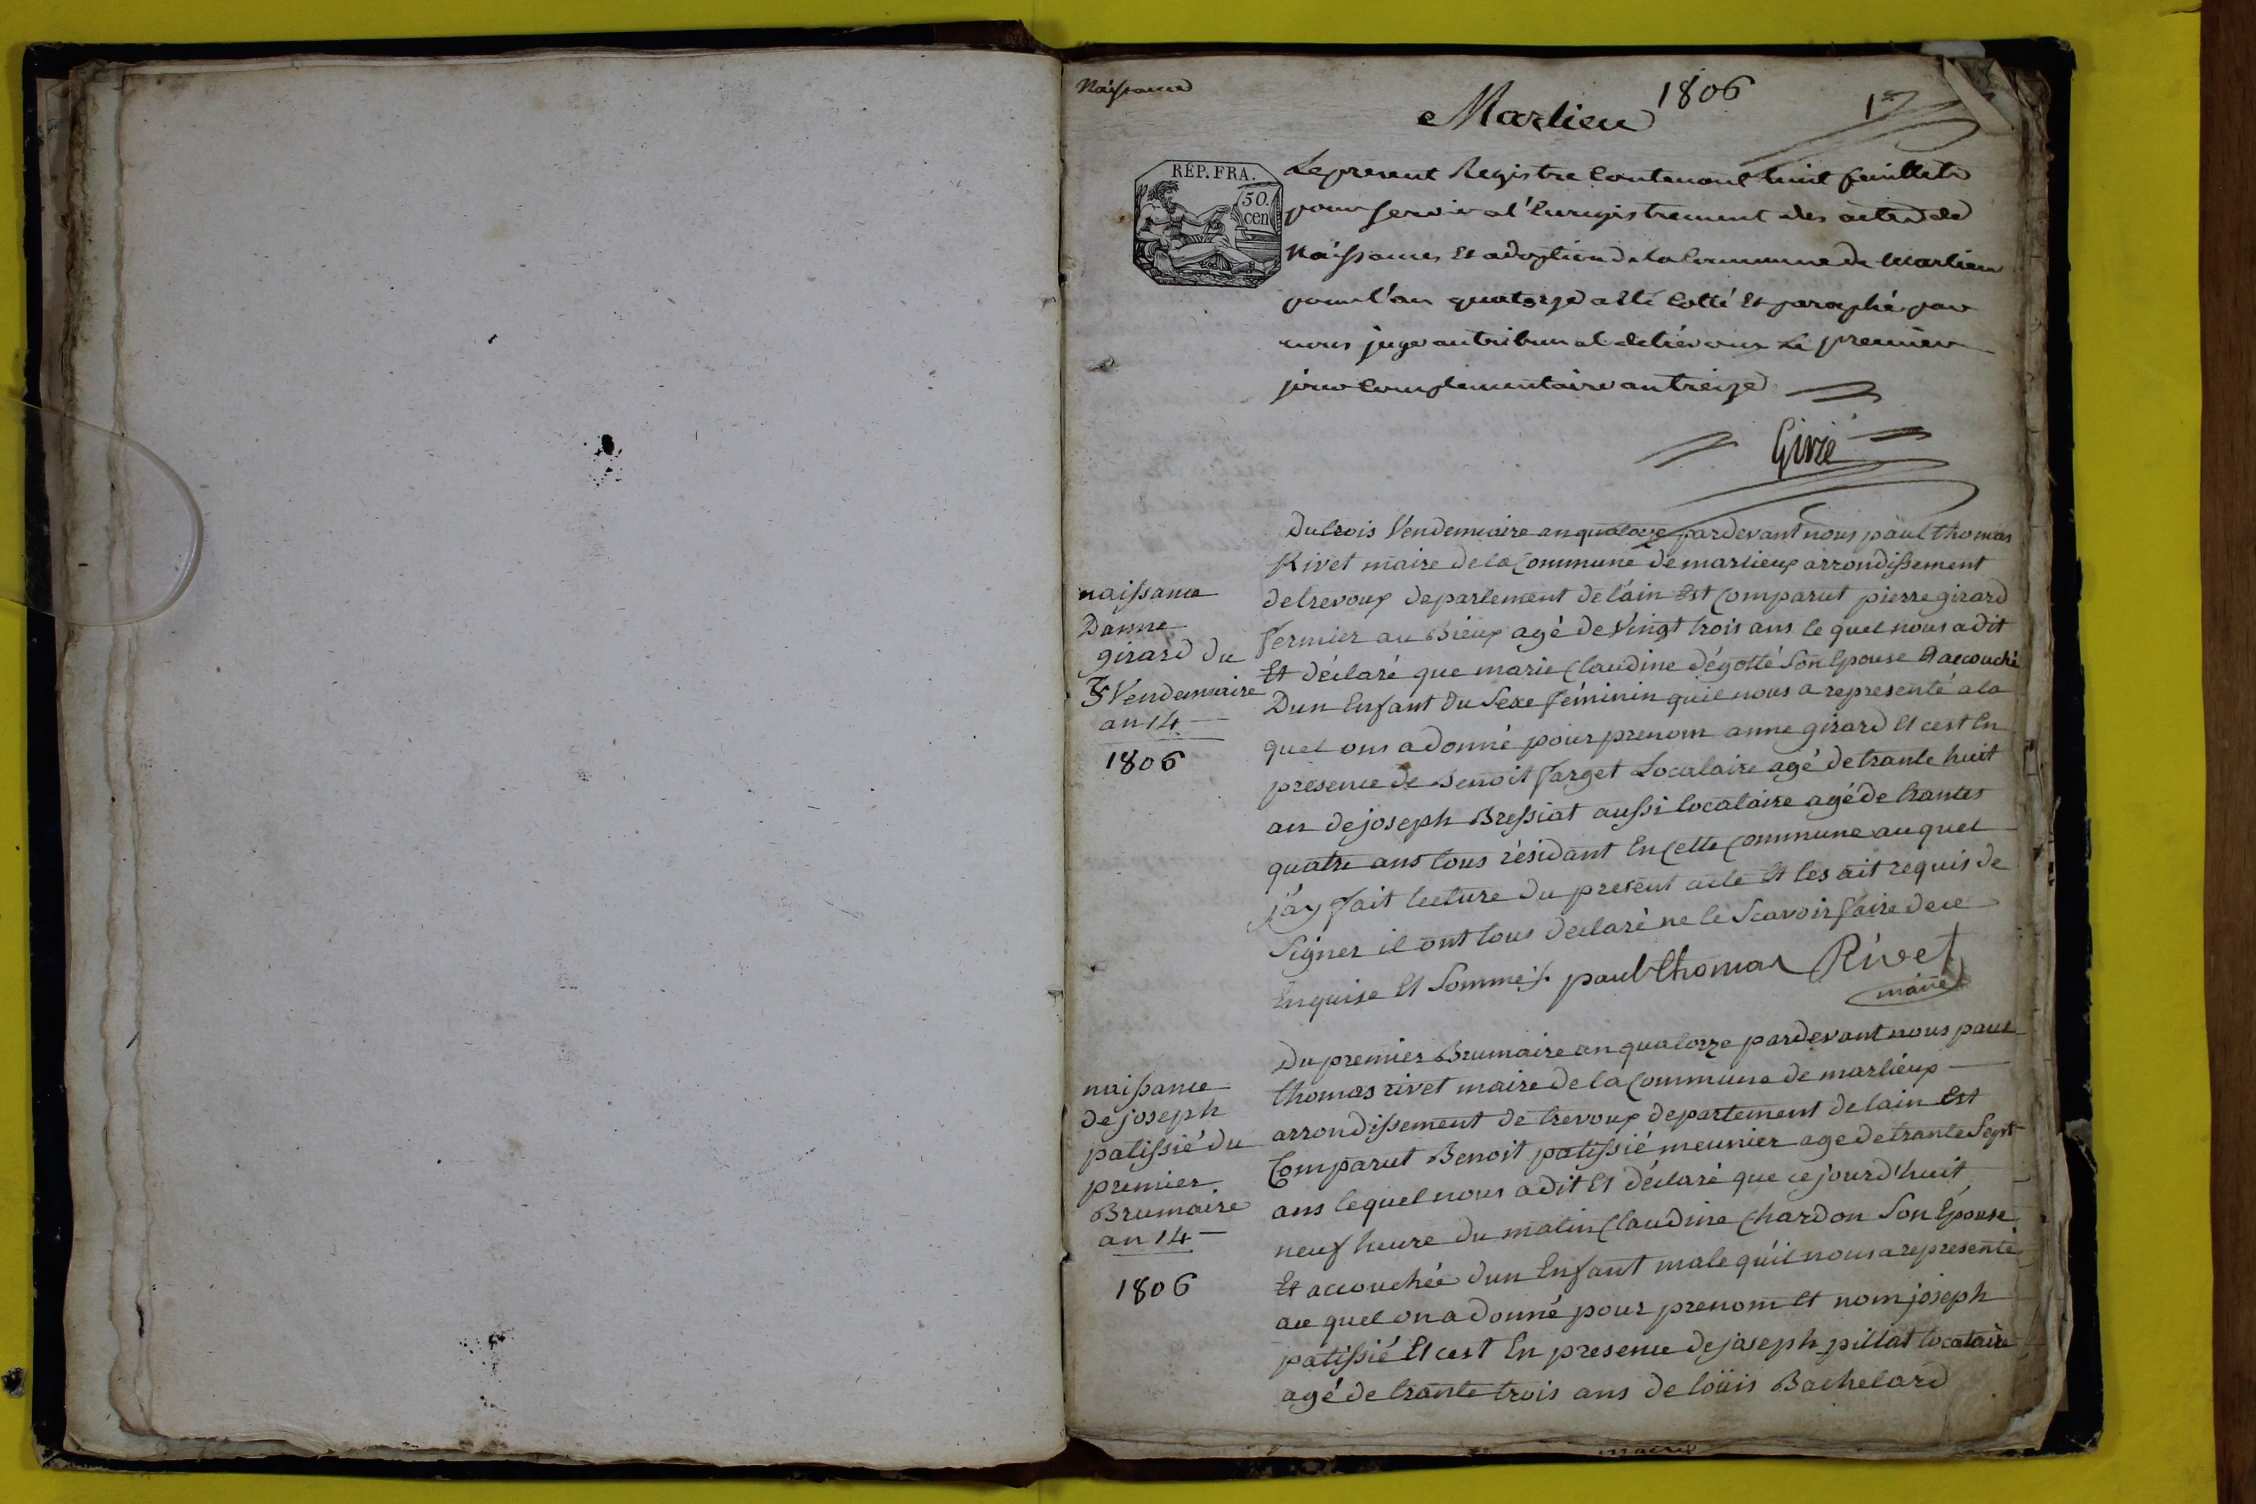 Naissance
1806
Marlieu
1er
RÉP. FRA.
50.
cen
Le present Registre Contenant huit feuillets
pour servir a l'Enregistrement des actes de
Naissances Et adoption de la Commune de Marlieu
pour l'an quatorze a Eté Cotté Et paraphé par
nous juge au tribunal de trévoux Le premier
jour Complementaire an treize
Givié
naissance
Danne
girard du
3 Vendemiaire
an 14
1806
Du trois Vendemiaire an quatorze pardevant nous paul thomas
Rivet maire de la Commune de marlieux arrondissement
de trevoux departement de l'ain Est Comparut pierre girard
fermier au Bieux agé de Vingt trois ans le quel nous a dit
Et déclaré que marie Claudine dégotté Son Epouse Et accouché
Dun Enfant du Sexe féminin quil nous a representé a la
quel ons a donné pour prenom anne girard Et cest En
presence de Benoit farget Locataire agé de trante huit
an de joseph Bressiat aussi locataire agé de trantes
quatre ans tous résidant En Cette Commune au quel
j'ay fait lecture du present acte Et les ait requis de
Signer il ont tous declaré ne le Scavoir faire de ce
Enquise Et Sommé /. paul thomas Rivet
maire
naissance
de joseph
patissié du
premier
Brumaire
an 14
1806
Du premier Brumaire an quatorze pardevant nous paul
thomas rivet maire de la Commune de marlieux
arrondissement de trevoux departement de lain Est
Comparut Benoit patissié meunier age de trante Sept
ans lequel nous a dit Et déclaré que ce jourd'huit
neuf heure du matin Claudine Chardon Son Epouse
Et accouchée dun Enfant male qu'il nous a representé
au quel on a donné pour prenom Et nom joseph
patissié Et cest En presence de joseph pillat locataire
agé de trante trois ans de loüis Bachelard